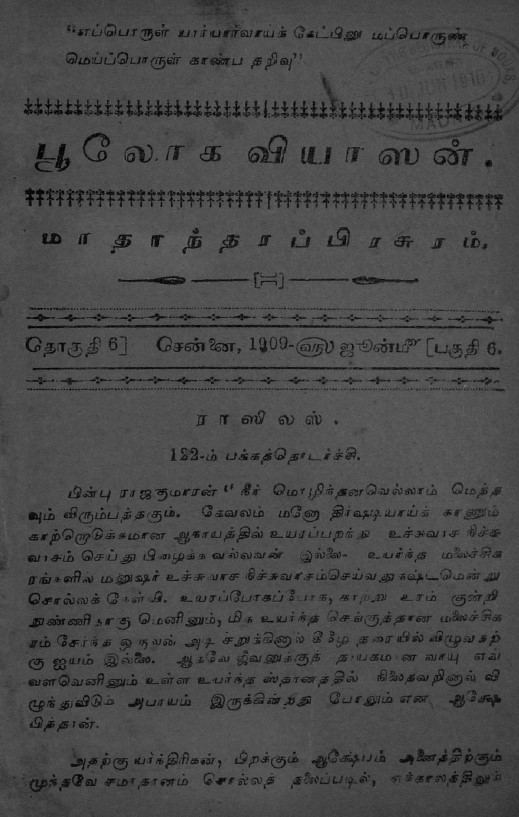 "எப்பொருள் யார்யார்வாய்க் கேட்பினு மப்பொருண்
மெய்ப்பொருள் காண்ப தறிவு"
பூலோகவியாஸன்.
மாதாந்தரப்பிரசுரம்.
தொகுதி 6] சென்னை, 1909-௵ ஜூன்௴ [பகுதி 6.
ராஸிலஸ்.
122-ம் பக்கத்தொடர்ச்சி.
பின்பு ராஜகுமாரன் " நீர் மொழிந்தனவெல்லாம் மெத்த
வும் விரும்பத்தகும். கேவலம் மனோ திர்ஷ்டியாய்க் காணும்
ஆகாயத்தில் உயரப்பறந்து உச்சுவாச நிச்சு
வாசம் செய்து பிழைக்க வல்லவன் இல்லை- உயர்ந்த மலைச்சிக
ரங்களில் மனுஷர் உச்சுவாச நிச்சுவாசம்செய்வது கஷ்டமென்று
சொல்லக் கேள்வி. உயரப்போகப்போக, காற்று உரம் குன்றி
நுண்ணிதாகு மெனினும், மிக உயர்ந்த செங்குத்தான மலைச்சிக
ரம் சேர்ந்த ஒருவன் அடி சறுக்கினால் கீழே தரையில் விழுவதற்
கு ஐயம் இல்லை. ஆகவே ஜீவனுக்குத் தாயகமான வாயு எவ்
வளவெனினும் உள்ள உயர்ந்த ஸ்தானத்தில் நிலைதவறினால் வி
ழுந்துவிடும் அபாயம் இருக்கின்றது போலும் என ஆக்ஷே
பித்தான்.
அதற்கு யந்திரிகன், பிறக்கும் ஆக்ஷேபம் அனைத்திற்கும்
முந்தவே சமாதானம் சொல்லத் தலைப்படில், எக்காலத்திலும்